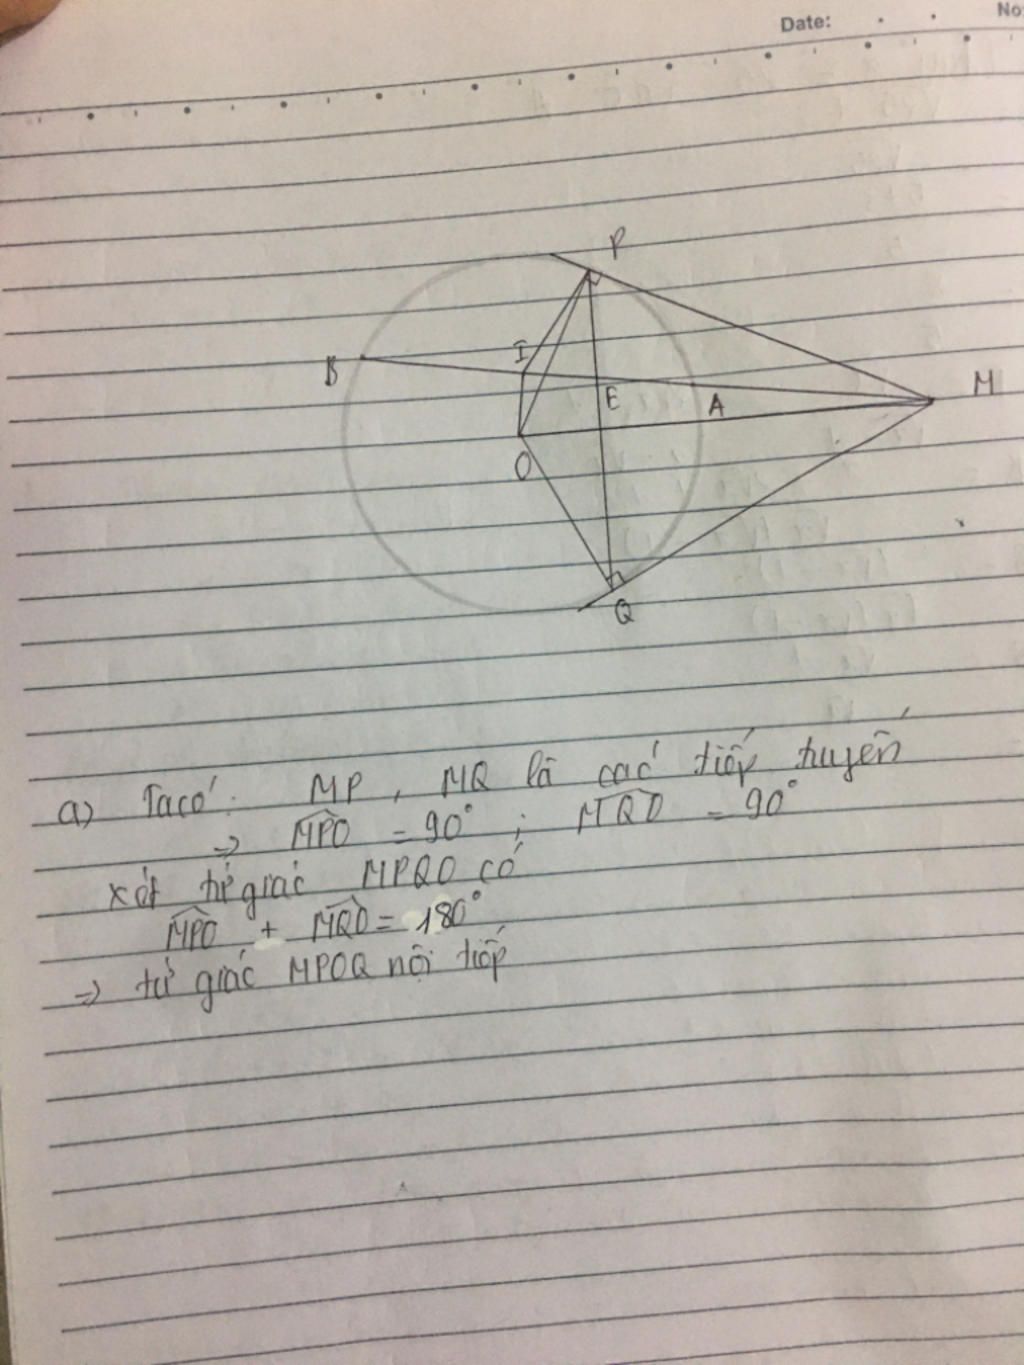 Date:
No:
P
B
I
E
A
M
O
Q
a) Ta có: MP, MQ là các tiếp tuyến
=> MPO = 90° ; MQO = 90°
xét tứ giác MPQO có
MPO + MQO = 180°
=> tứ giác MPOQ nội tiếp